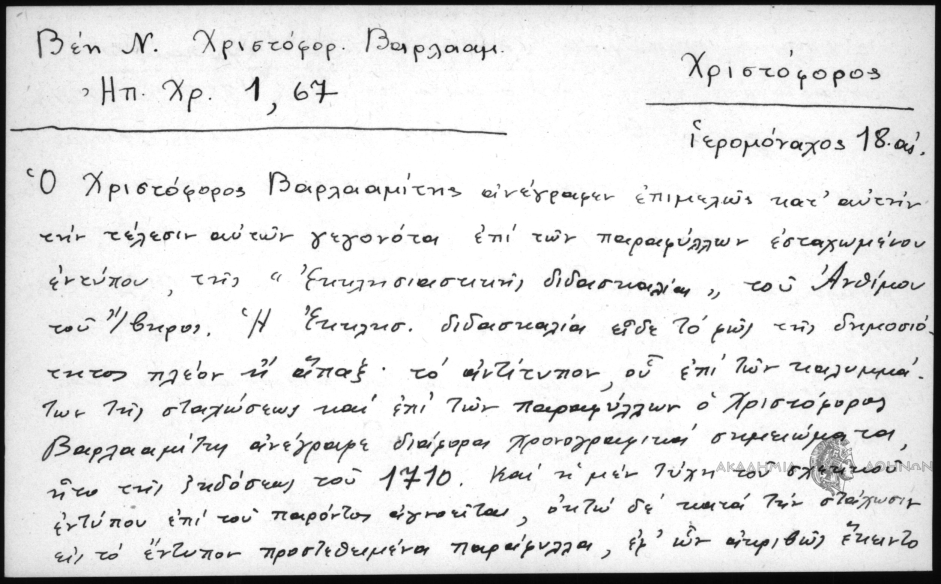 Βέη Ν. Χριστόφορ. Βαρλααμ.
Ἠπ. Χρ. 1, 67
Χριστόφορος
ἱερομόναχος 18. αἰ.
Ὁ Χριστόφορος Βαρλααμίτης ἀνέγραφεν ἐπιμελῶς κατ' αὐτήν
τήν τέλεσιν αὐτῶν γεγονότα ἐπί τῶν παραφύλλων ἐσταχωμένου
ἐντύπου, τῆς "Ἐκκλησιαστικῆς διδασκαλίας" τοῦ Ἀνθίμου
τοῦ Ἴβηρος. Ἡ Ἐκκλησ. διδασκαλία εἶδε τό φῶς τῆς δημοσιό-
τητος πλέον ἤ ἅπαξ· τό ἀντίτυπον, οὗ ἐπί τῶν καλυμμά-
των τῆς σταχώσεως καί ἐπί τῶν παραφύλλων ὁ Χριστόφορος
Βαρλααμίτης ἀνέγραφε διάφορα χρονογραφικά σημειώματα,
ἦτο τῆς ἐκδόσεως τοῦ 1710. Καί ἡ μέν τύχη τοῦ σχετικοῦ
ἐντύπου ἐπί τοῦ παρόντος ἀγνοεῖται, ὀκτώ δέ κατά τήν στάχωσιν
εἰς τό ἔντυπον προστεθειμένα παράφυλλα, ἐφ' ὧν ἀκριβῶς ἔκειντο
ΑΚΑΔΗΜΙΑ ΑΘΗΝΩΝ